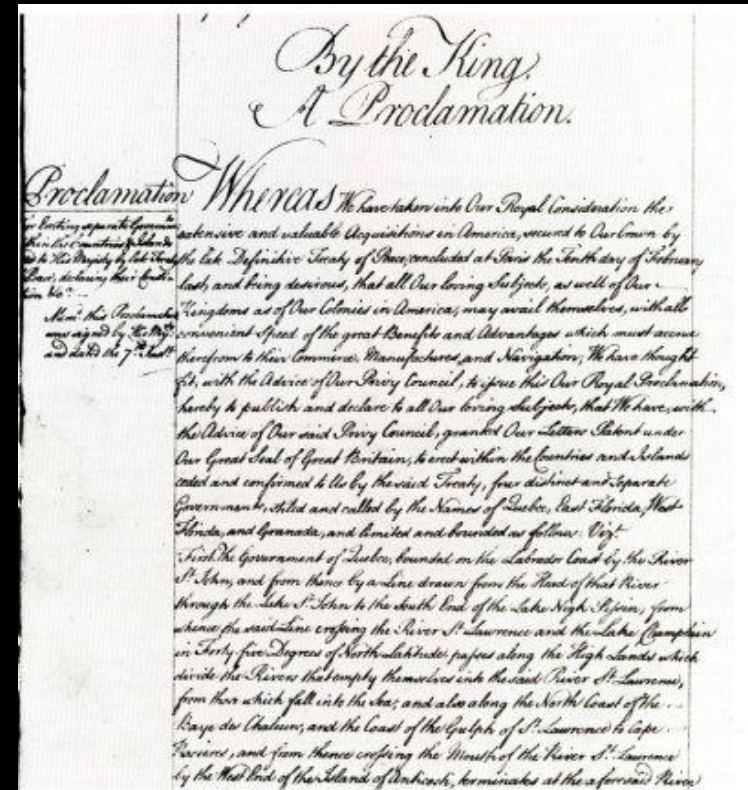 By the King.
A Proclamation.
Proclamation
for Erecting separate Governm.ts
within the Countries & Islands
ceded to His Majesty by late Treaty
of Peace, declaring their Constitu-
tion &c.
Mem: this Proclamation
was signed by His Maj.ty
and dated the 7.th Inst.t
Whereas We have taken into Our Royal Consideration the
extensive and valuable Acquisitions in America, secured to Our Crown by
the late Definitive Treaty of Peace, concluded at Paris the Tenth day of February
last, and being desirous, that all Our loving Subjects, as well of Our
Kingdoms as of Our Colonies in America, may avail themselves, with all
convenient Speed of the great Benefits and Advantages which must accrue
therefrom to their Commerce, Manufactures, and Navigation; We have thought
fit, with the Advice of Our Privy Council, to issue this Our Royal Proclamation,
hereby to publish and declare to all Our loving Subjects, that We have, with
the Advice of Our said Privy Council, granted Our Letters Patent under
Our Great Seal of Great Britain, to erect within the Countries and Islands
ceded and confirmed to Us by the said Treaty, four distinct and Separate
Governments, stiled and called by the Names of Quebec, East Florida, West
Florida, and Granada, and limited and bounded as follows: Viz.t
First, the Government of Quebec, bounded on the Labrador Coast by the River
S.t John, and from thence by a Line drawn from the Head of that River
through the Lake S.t John to the South End of the Lake Nigh Pissin; from
whence the said Line crossing the River S.t Lawrence and the Lake Champlain
in Forty five Degrees of North Latitude, passes along the High Lands which
divide the Rivers that empty themselves into the said River S.t Lawrence,
from those which fall into the Sea; and also along the North Coast of the
Baye des Chaleurs, and the Coast of the Gulph of S.t Lawrence to Cape
Rosieres, and from thence crossing the Mouth of the River S.t Lawrence
by the West End of the Island of Anticosti, terminates at the aforesaid River